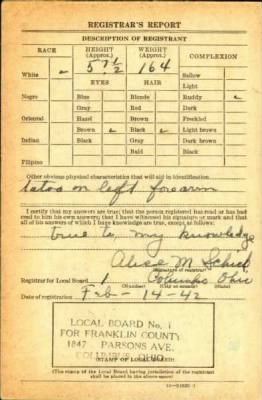 REGISTRAR'S REPORT
DESCRIPTION OF REGISTRANT
RACE HEIGHT (Approx.) WEIGHT (Approx.) COMPLEXION
White 5 7 1/2 164 Sallow
EYES HAIR Light
Negro Blue Blonde Ruddy
Gray Red Dark
Oriental Hazel Brown Freckled
Brown Black Light brown
Indian Black Gray Dark brown
Bald Black
Filipino
Other obvious physical characteristics that will aid in identification
tatoo on left forearm
I certify that my answers are true; that the person registered has read or has had
read to him his own answers; that I have witnessed his signature or mark and that
all of his answers of which I have knowledge are true, except as follows:
true to my knowledge
Alice M
(Signature of registrar)
Registrar for Local Board 1 Columbus Ohio
(Number) (City or county) (State)
Date of registration Feb - 14 - 42
LOCAL BOARD No. 1
FOR FRANKLIN COUNTY
1847 PARSONS AVE.
COLUMBUS, OHIO
(STAMP OF LOCAL BOARD)
(The stamp of the Local Board having jurisdiction of the registrant
shall be placed in the above space.)